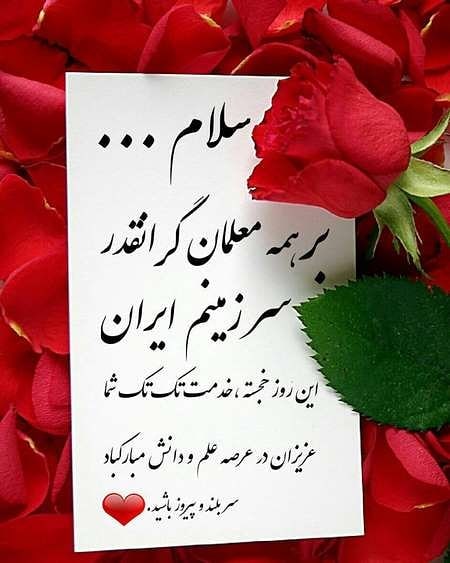 سلام ...
بر همه معلمان گرانقدر
سرزمینم ایران
این روز خجسته ، خدمت تک تک شما
عزیزان در عرصه علم و دانش مبارکباد
سربلند و پیروز باشید.